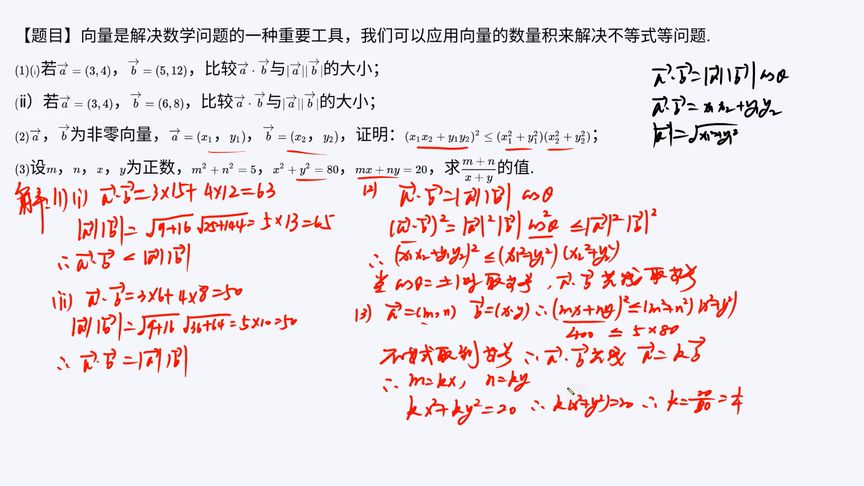 【题目】向量是解决数学问题的一种重要工具，我们可以应用向量的数量积来解决不等式等问题.
(1)(ⅰ)若a⃗ = (3,4)，b⃗ = (5,12)，比较a⃗ · b⃗与|a⃗||b⃗|的大小；
(ⅱ）若a⃗ = (3,4)，b⃗ = (6,8)，比较a⃗ · b⃗与|a⃗||b⃗|的大小；
(2)a⃗，b⃗为非零向量，a⃗ = (x₁，y₁)，b⃗ = (x₂，y₂)，证明：(x₁x₂ + y₁y₂)² ≤ (x₁² + y₁²)(x₂² + y₂²)；
(3)设m，n，x，y为正数，m² + n² = 5，x² + y² = 80，mx + ny = 20，求(m + n)/(x + y)的值.
a⃗·b⃗=|a⃗||b⃗| cosθ
a⃗·b⃗=x₁x₂+y₁y₂
|a⃗|=√(x₁²+y₁²)
解：(1)(i) a⃗·b⃗=3×5+4×12=63
|a⃗||b⃗|=√(9+16) √(25+144)=5×13=65
∴a⃗·b⃗ < |a⃗||b⃗|
(ii) a⃗·b⃗=3×6+4×8=50
|a⃗||b⃗|=√(9+16) √(36+64)=5×10=50
∴ a⃗·b⃗=|a⃗||b⃗|
(2) a⃗·b⃗=|a⃗||b⃗| cosθ
(a⃗·b⃗)²=|a⃗|²|b⃗|² cos²θ ≤|a⃗|²|b⃗|²
∴ (x₁x₂+y₁y₂)²≤(x₁²+y₁²)(x₂²+y₂²)
当cosθ=±1时取等号，a⃗·b⃗共线取等号
(3) a⃗=(m,n) b⃗=(x,y) ∴(mx+ny)²≤(m²+n²)(x²+y²)
400 ≤ 5×80
不等式取到等号 ∴a⃗·b⃗共线 a⃗=kb⃗
∴ m=kx, n=ky
kx²+ky²=20 ∴ k(x²+y²)=20 ∴ k=20/80=1/4